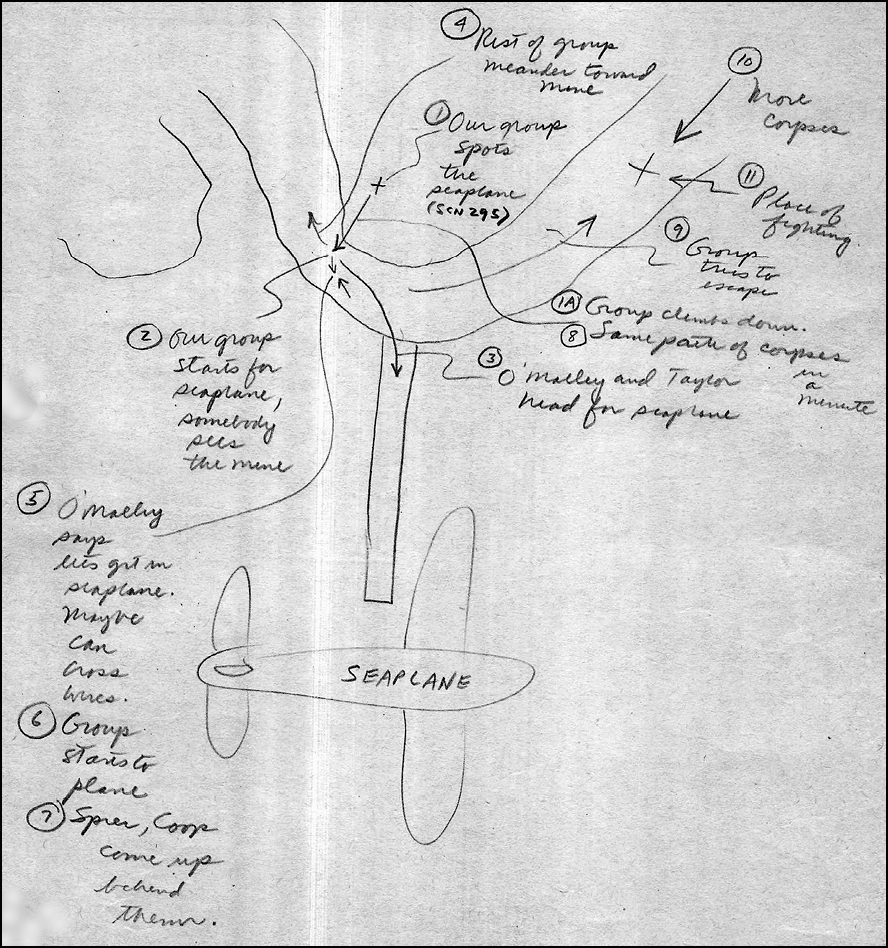 4 Rest of group
meander toward
mine
1 Our group
spots
the
seaplane
(SCN 295)
10
More
Corpses
11 Place of
fighting
9 Group
tries to
escape
1A Group climbs down.
8 Same path of corpses
in
a
minute
2 Our group
starts for
seaplane,
somebody
sees
the mine
3 O'Malley and Taylor
head for seaplane
5 O'Malley
says
lets get in
seaplane.
Maybe
can
cross
wires.
SEAPLANE
6 Group
starts to
plane
7 Spier, Coop
come up
behind
them.